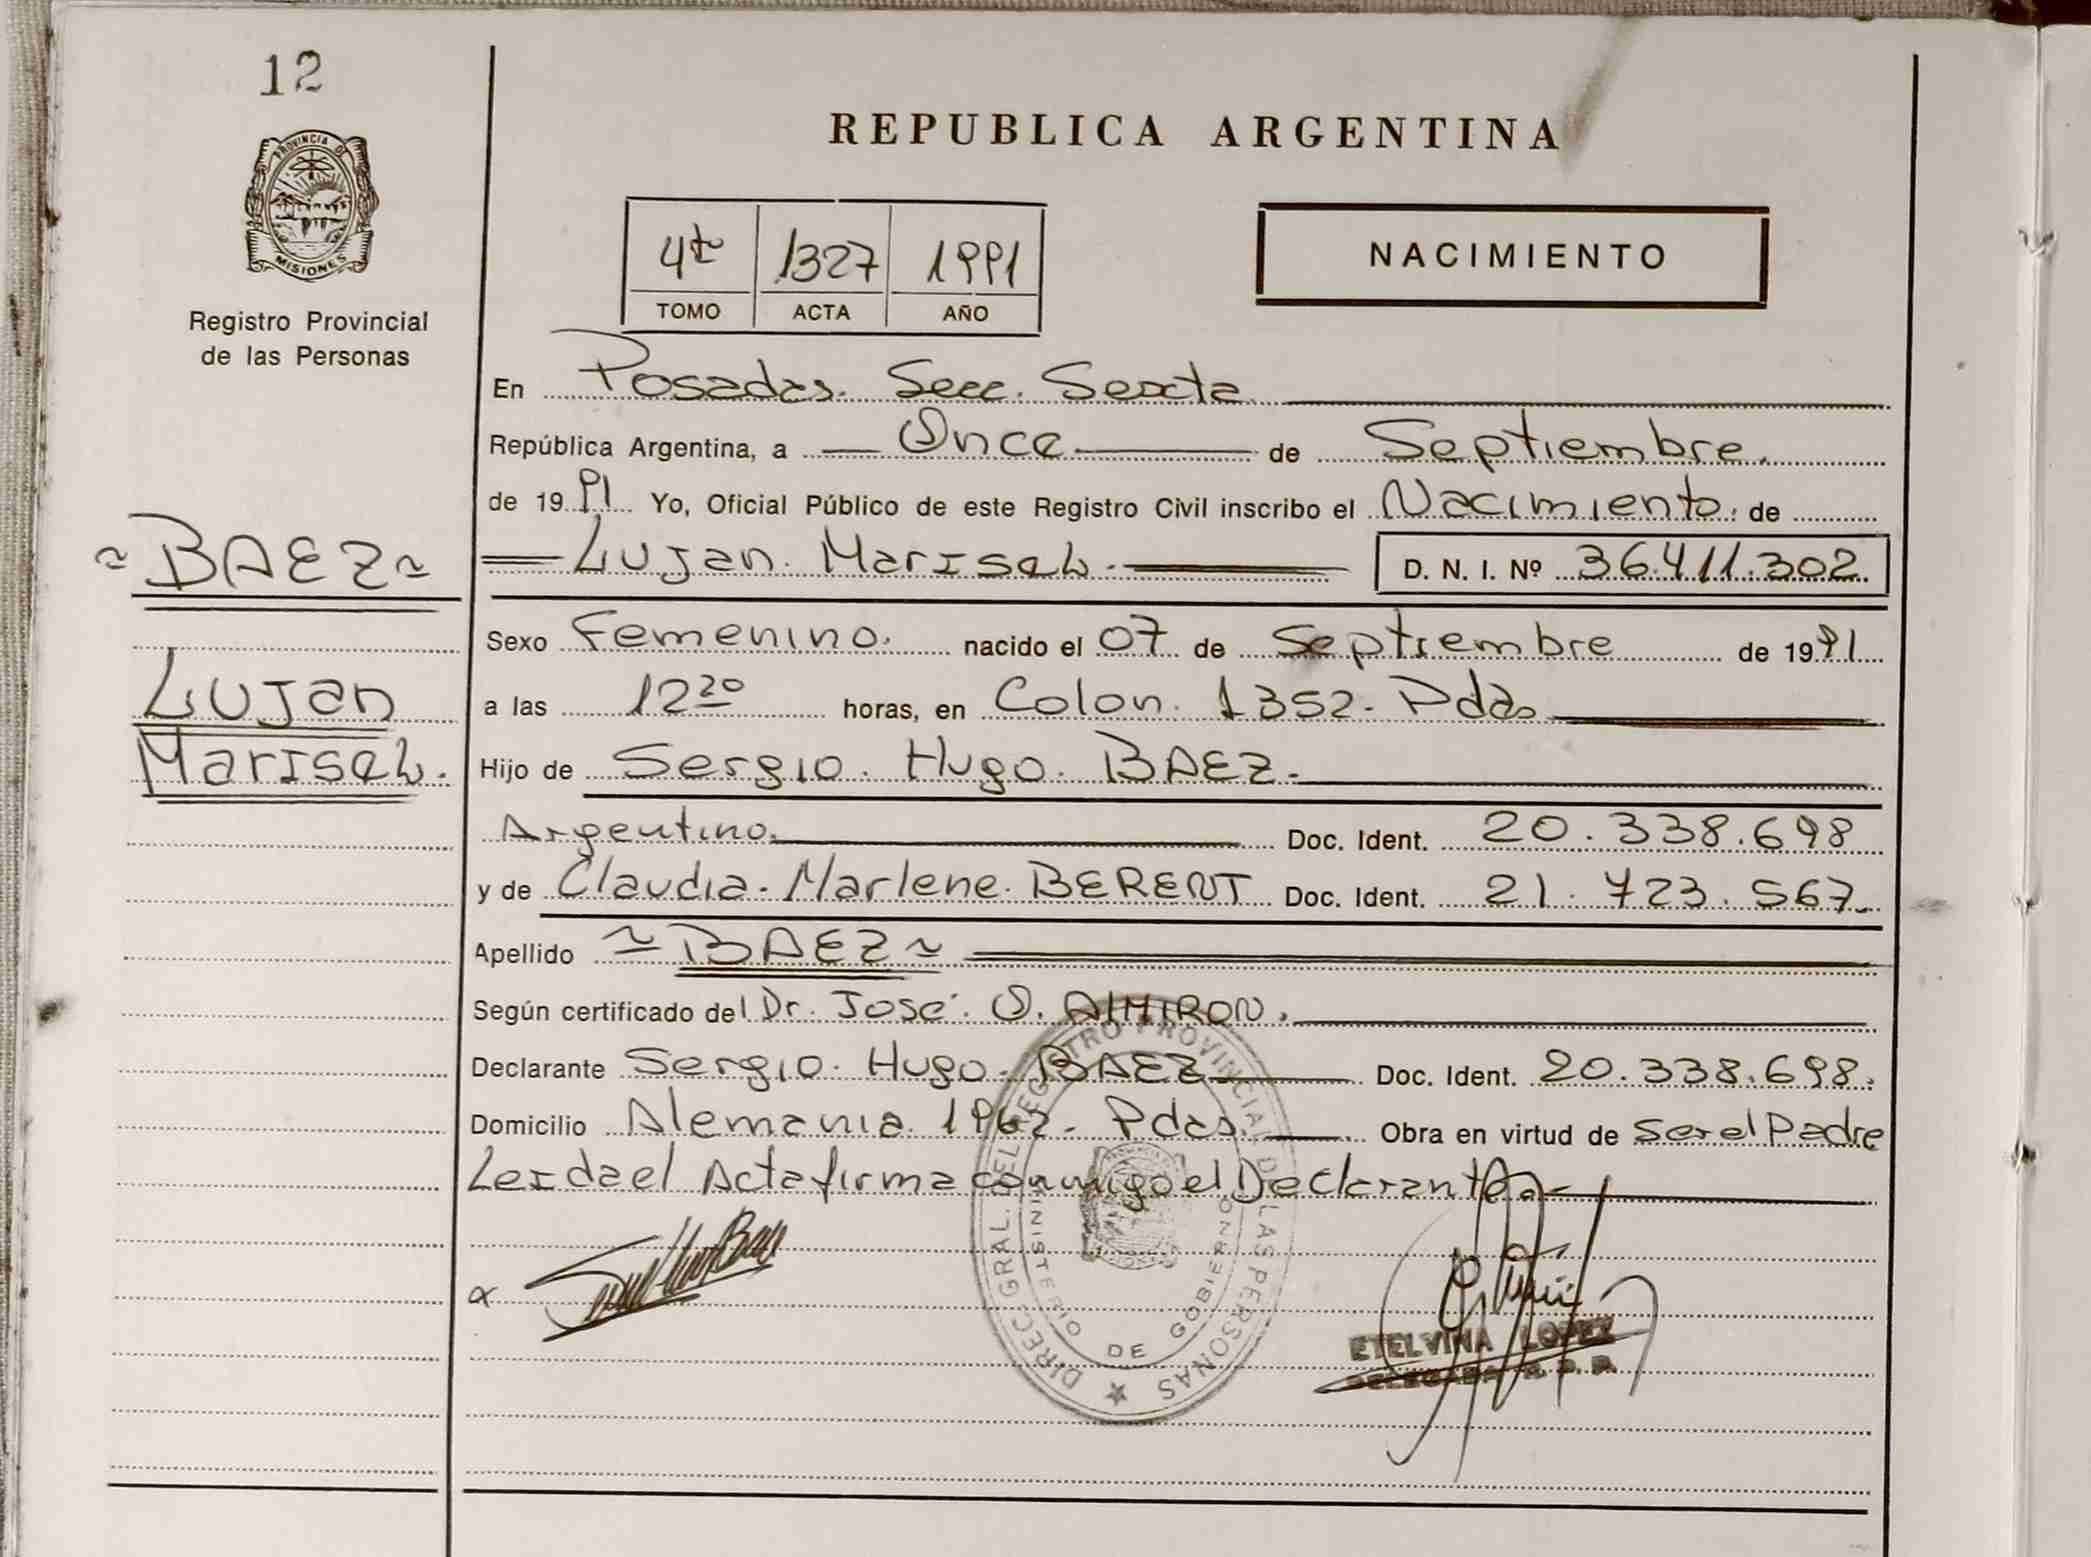 12
REPUBLICA ARGENTINA
PROVINCIA DE
MISIONES
4to 1327 1991
TOMO ACTA AÑO
NACIMIENTO
Registro Provincial
de las Personas
En Posadas. Secc. Sexta
República Argentina, a Once de Septiembre.
de 1991 Yo, Oficial Público de este Registro Civil inscribo el Nacimiento. de
BAEZ
Lujan. Marisel. D. N. I. Nº 36.411.302
Sexo Femenino. nacido el 07 de Septiembre de 1991
Lujan
a las 12 20 horas, en Colon. 1352. Pdas
Marisel.
Hijo de Sergio. Hugo. BAEZ.
Argentino. Doc. Ident. 20.338.698
y de Claudia. Marlene. BERENT Doc. Ident. 21.723.567
Apellido BAEZ
Según certificado del Dr. José. O. ALMIRON.
Declarante Sergio. Hugo. BAEZ Doc. Ident. 20.338.698.
Domicilio Alemania 1962. Pdas. Obra en virtud de Ser el Padre
Leida el Acta firma conmigo el Declarante.
DIREC. GRAL. DEL REGISTRO PROVINCIAL DE LAS PERSONAS
MINISTERIO DE GOBIERNO
ETELVINA LOPEZ
DELEGADA R. P. P.